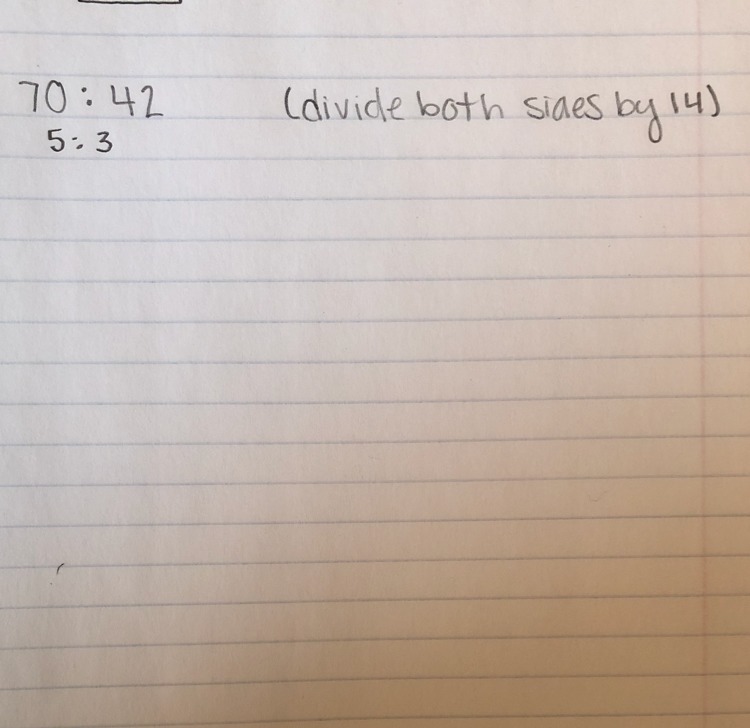 70 : 42 (divide both sides by 14)
5 : 3